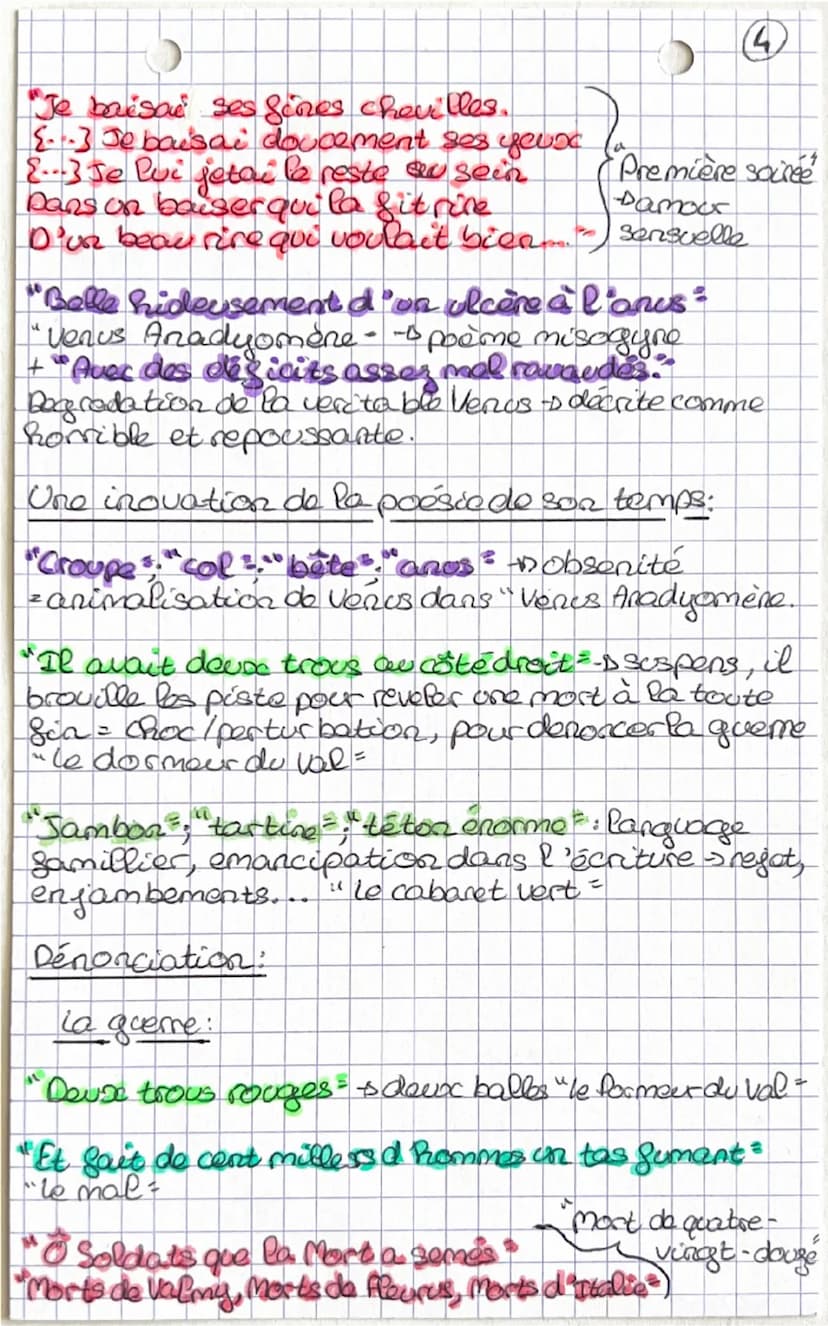 4
"Je baisai ses fines chevilles.
[...] Je baisai doucement ses yeux
[...] Je lui jetai le reste au sein
Dans un baiser qui la fit rire
D'un beau rire qui voulait bien..."
"Première soirée"
→ amour
sensuelle
"Belle hideusement d'un ulcère à l'anus"
"Venus Anadyomène" → poème misogyne
+ "Avec des déficits assez mal ravaudés."
Degradation de la veritable Venus → décrite comme
horrible et repoussante.
Une inovation de la poésie de son temps:
"Croupe"; "col"; "bête"; "anus" → obsenité
= animalisation de Vénus dans "Vénus Anadyomène.
"Il avait deux trous au côté droit" → suspens, il
brouille les piste pour reveler une mort à la toute
fin = choc/perturbation, pour denoncer la guerre
"le dormeur du val"
"Jambon"; "tartine"; "téton énorme" : language
famillier, emancipation dans l'écriture → rejet,
enjambements... "le cabaret vert"
Dénonciation:
La guerre:
"Deux trous rouges" → deux balles "le formeur du val"
"Et fait de cent milless d hommes un tas fumant"
"le mal"
"Mort de quatre-
vingt-douze"
"Ô Soldats que la Mort a semés"
"Morts de Valmy, Morts de Fleurus, Morts d'Italie"